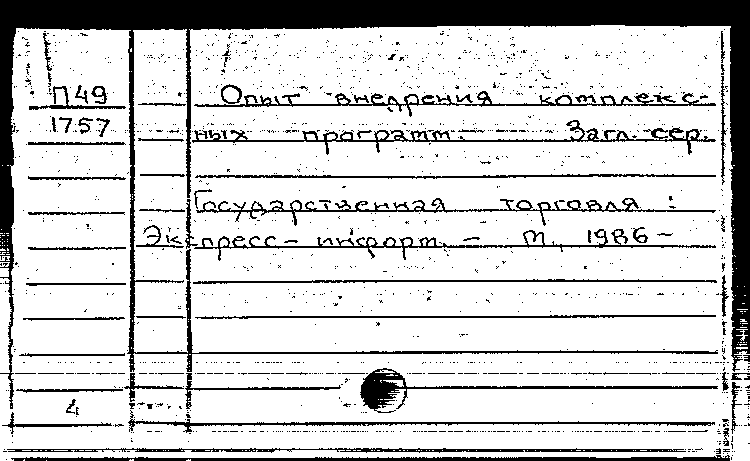 П49
1757
Опыт внедрения комплекс-
ных программ. Загл. сер.
Государственная торговля :
Экспресс-информ. — М., 1986 —
4